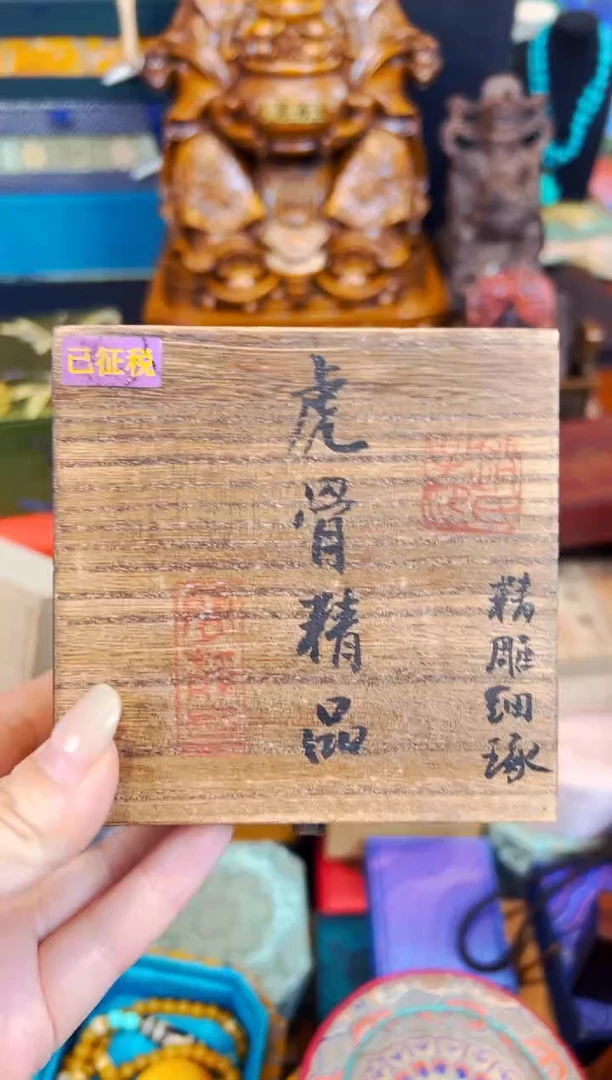 已征税
虎骨精品
精雕细琢